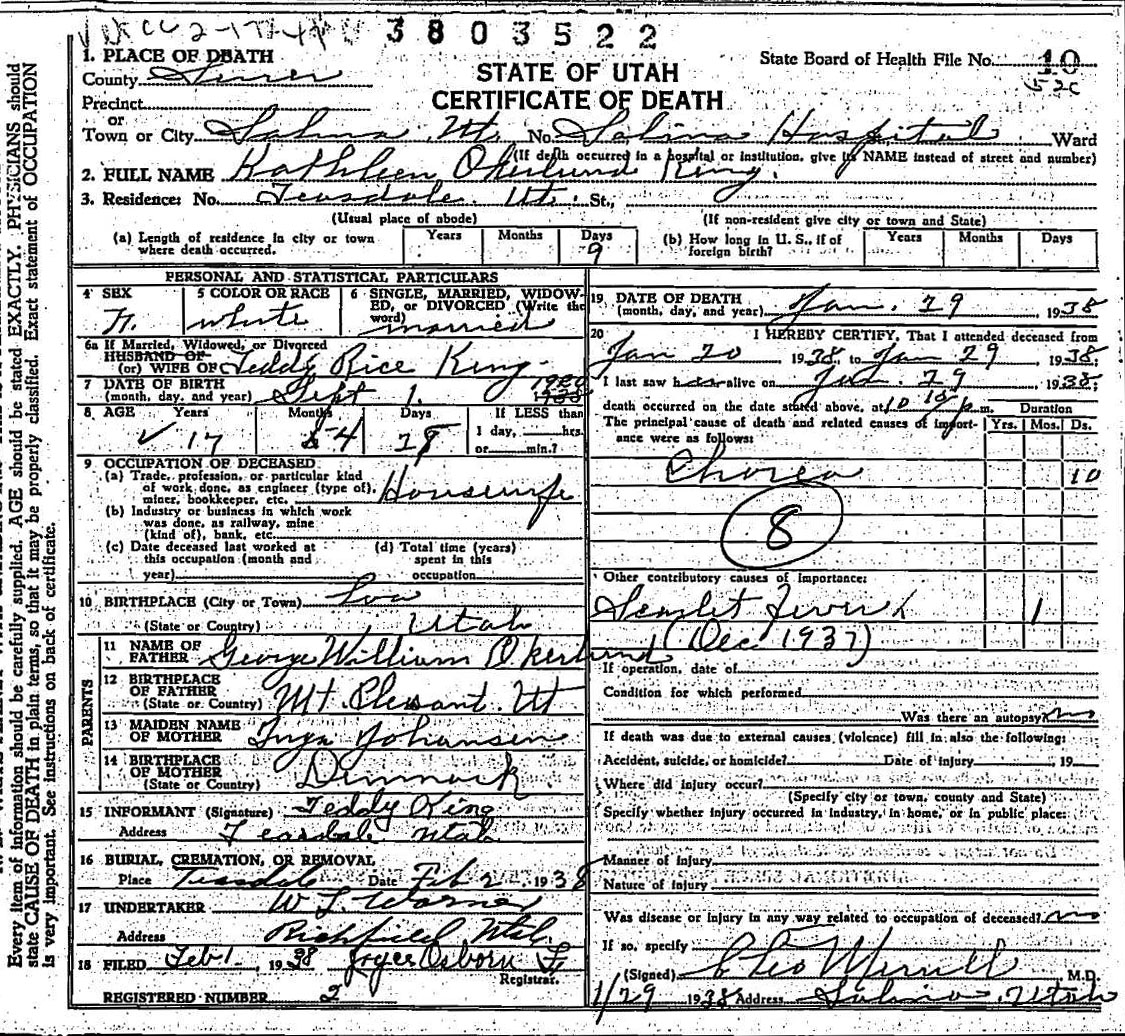 3803522
1. PLACE OF DEATH
State Board of Health File No. 10
County Sevier
52c
STATE OF UTAH
CERTIFICATE OF DEATH
Precinct
or
Town or City Salina Ut. No. Salina Hospital Ward
(If death occurred in a hospital or institution, give its NAME instead of street and number)
2. FULL NAME Kathleen Okerlund King.
3. Residence: No. Teasdale Ut. St.,
(Usual place of abode) (If non-resident give city or town and State)
(a) Length of residence in city or town where death occurred. Years Months Days 9
(b) How long in U. S., if of foreign birth? Years Months Days
PERSONAL AND STATISTICAL PARTICULARS
4 SEX F. 5 COLOR OR RACE white
6 SINGLE, MARRIED, WIDOWED, or DIVORCED (Write the word) married
6a If Married, Widowed, or Divorced
HUSBAND OF
(or) WIFE OF Teddy Rice King
7 DATE OF BIRTH
(month, day, and year) Sept 1. 1920
8 AGE Years 17 Months 4 Days 28 If LESS than 1 day, hrs. or min.?
9 OCCUPATION OF DECEASED
(a) Trade, profession, or particular kind
of work done, as engineer (type of),
miner, bookkeeper, etc. Housewife
(b) Industry or business in which work
was done, as railway, mine
(kind of), bank, etc.
(c) Date deceased last worked at
this occupation (month and
year)
(d) Total time (years)
spent in this
occupation
10 BIRTHPLACE (City or Town) Loa
(State or Country) Utah
PARENTS
11 NAME OF
FATHER George William Okerlund
12 BIRTHPLACE
OF FATHER
(State or Country) Mt. Plesant. Ut
13 MAIDEN NAME
OF MOTHER Inga Johansen
14 BIRTHPLACE
OF MOTHER
(State or Country) Denmark.
15 INFORMANT (Signature) Teddy King
Address Teasdale Utah
16 BURIAL, CREMATION, OR REMOVAL
Place Teasdale Date Feb 2 1938
17 UNDERTAKER W L Warner
Address Richfield Utah
18 FILED Feb 1. 1938 Joyce Osborn
Registrar.
REGISTERED NUMBER 2
19 DATE OF DEATH
(month, day, and year) Jan. 29 1938
20 I HEREBY CERTIFY, That I attended deceased from
Jan 20 1938, to Jan 29 1938.
I last saw her alive on Jan. 29 1938;
death occurred on the date stated above, at 10 10 p.m. Duration
The principal cause of death and related causes of importance were as follows: Yrs. Mos. Ds.
Chorea 10
8
Other contributory causes of importance:
Scarlet Fever 1
(Dec 1937)
If operation, date of
Condition for which performed
Was there an autopsy? no
If death was due to external causes (violence) fill in also the following:
Accident, suicide, or homicide? Date of injury 19
Where did injury occur?
(Specify city or town, county and State)
Specify whether injury occurred in industry, in home, or in public place:
Manner of injury
Nature of injury
Was disease or injury in any way related to occupation of deceased? no
If so, specify
(Signed) C Leo Merrill M.D.
1/29 1938 Address Salina, Utah
Every item of information should be carefully supplied. AGE should be stated EXACTLY. PHYSICIANS should
state CAUSE OF DEATH in plain terms, so that it may be properly classified. Exact statement of OCCUPATION
is very important. See instructions on back of certificate.